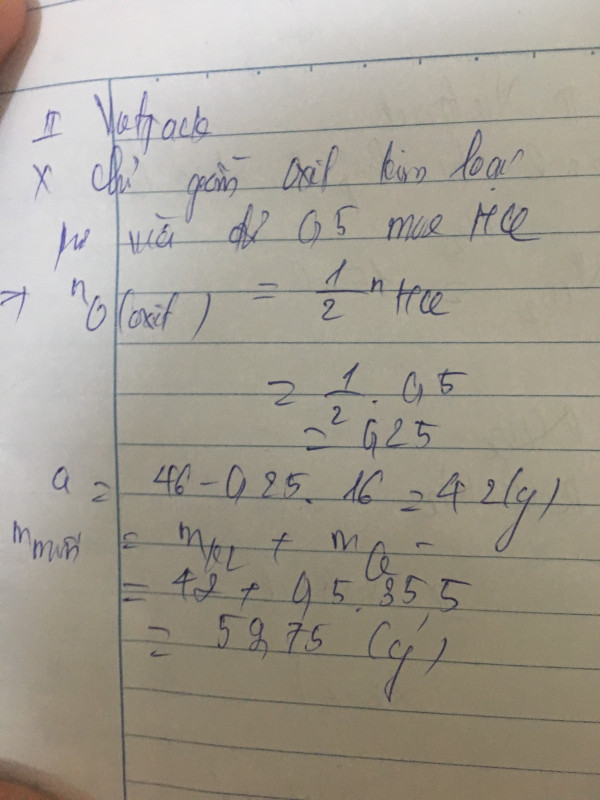 II Vietjack
X chỉ gồm oxit kim loại
pư vừa đủ 0,5 mol HCl
→ nO(oxit) = 1/2 nHCl
= 1/2 . 0,5
= 0,25
a = 46 - 0,25. 16 = 42(g)
m muối = mKL + mCl⁻
= 42 + 0,5.35,5
= 59,75 (g)